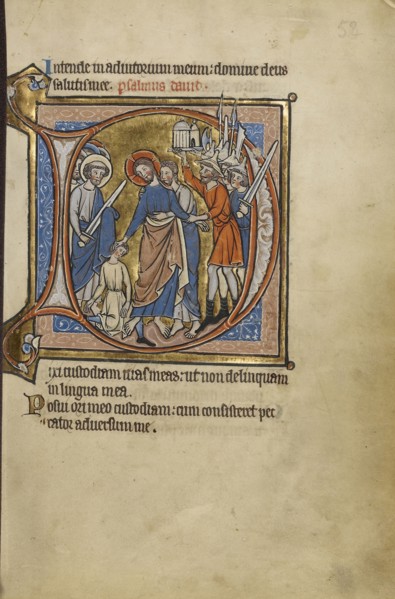 52
Intende in adiutorium meum: domine deus
salutis mee. psalmus david.
D
ixi custodiam uias meas: ut non delinquam
in lingua mea.
Posui ori meo custodiam: cum consisteret pec
cator adversum me.